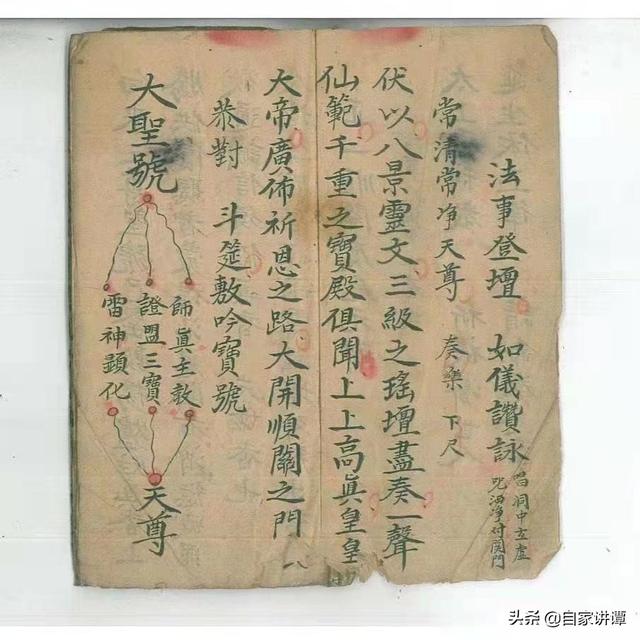 法事登壇 如儀讚詠
唱洞中玄虛
咒洒净付関門
常清常净天尊 奏樂 下尺
伏以八景靈文三級之瑤壇盡奏一聲
仙範千重之寶殿俱聞上上高眞皇皇
大帝廣佈祈恩之路大開順關之門
八
恭對 斗筵敷吟寶號
大聖號
師眞主教
證盟三寶
雷神顕化
天尊
头条 @自家讲谭